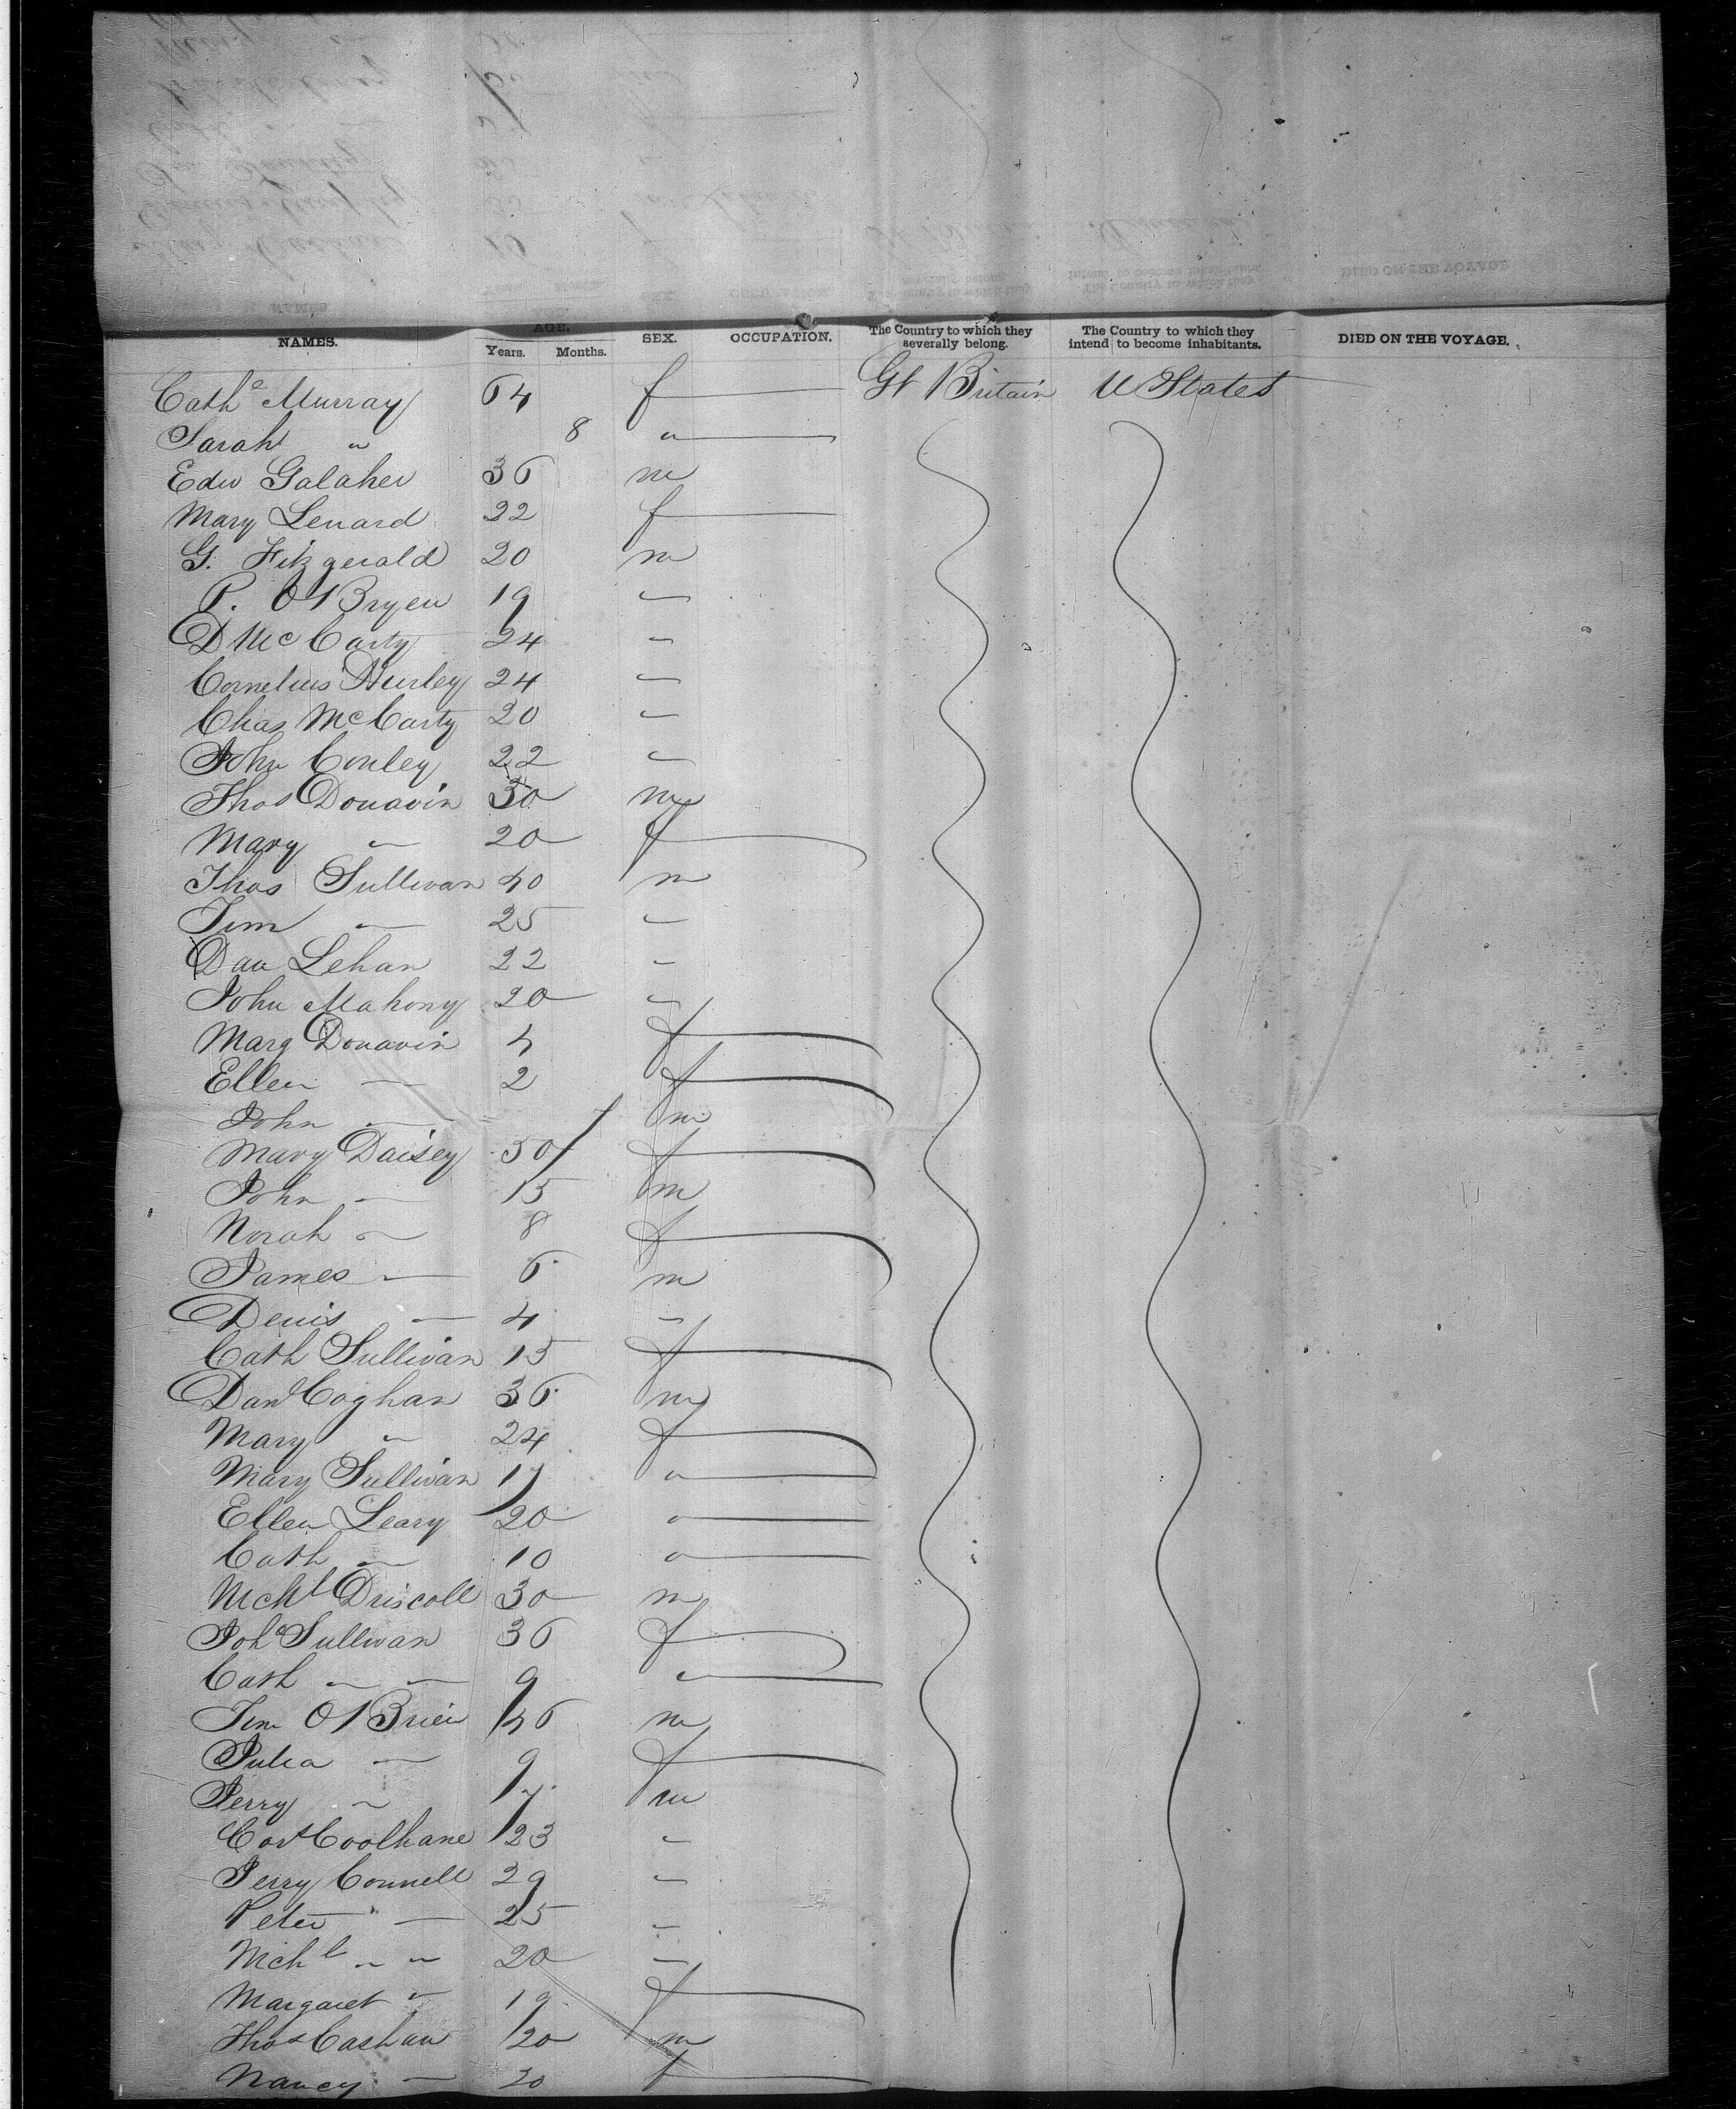 NAMES. AGE. Years. Months. SEX. OCCUPATION. The Country to which they severally belong. The Country to which they intend to become inhabitants. DIED ON THE VOYAGE.
Cathe Murray 64 f Gt Britain U States
Sarah " 8 "
Edw Galaher 36 m
Mary Lenard 22 f
G. Fitzgerald 20 m
P. O'Bryen 19 "
D McCarty 24 "
Cornelius Hurley 24 "
Chas McCarty 20 "
John Conley 22 "
Thos Donavin 30 m
Mary " 20 f
Thos Sullivan 40 m
Tim " 25 "
Dan Lehan 22 "
John Mahony 20 "
Marg Donavin 4 f
Ellen " 2 f
John " m
Mary Daisey 50 f
John " 15 m
Norah " 8 f
James " 6 m
Denis " 4 "
Cath Sullivan 15 f
Danl Coghan 36 m
Mary " 24 f
Mary Sullivan 17 "
Ellen Leary 20 "
Cath " 10 "
Michl Driscoll 30 m
Joha Sullivan 36 f
Cath " " 9 "
Tim O'Brien 46 m
Julia " 9 f
Jerry " 7 m
Cors Coolhane 23 "
Jerry Connell 29 "
Peter " 25 "
Michl " " 20 "
Margaret " 19 f
Thos Cashan 20 m
Nancy " 20 f